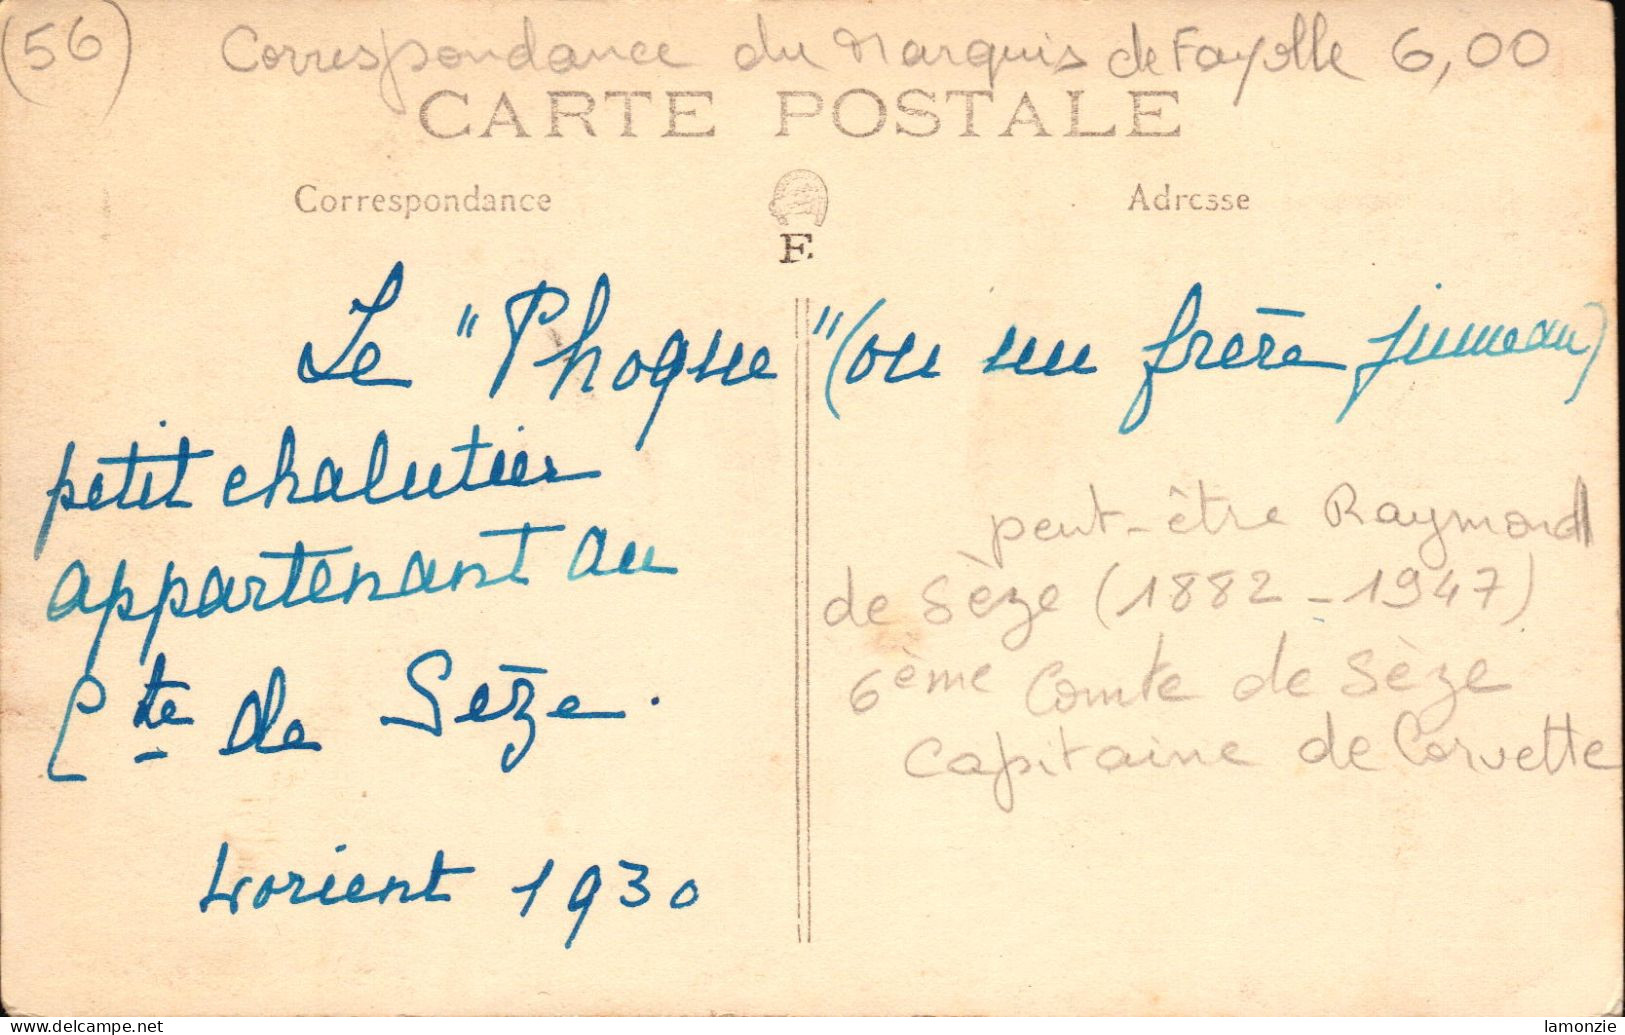 (56) Correspondance du Marquis de Fayolle 6,00
CARTE POSTALE
Correspondance
Adresse
E
Le "Phoque" (ou un frère jumeau)
petit chalutier
appartenant au
Cte de Sèze.
Lorient 1930
peut-être Raymond
de Sèze (1882-1947)
6ème Comte de Sèze
Capitaine de Corvette
delcampe.net
lamonzie